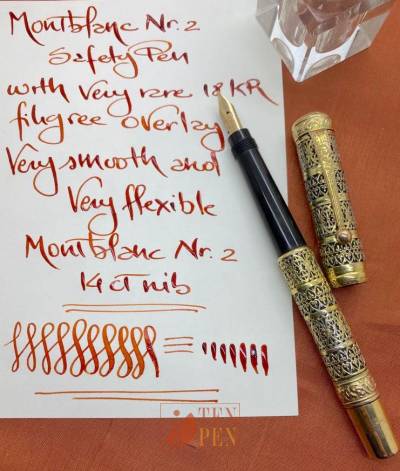 Montblanc Nr. 2
Safety Pen
with very rare 18 KR
filigree overlay
Very smooth and
Very flexible
Montblanc Nr. 2
14 ct nib
TEN
PEN